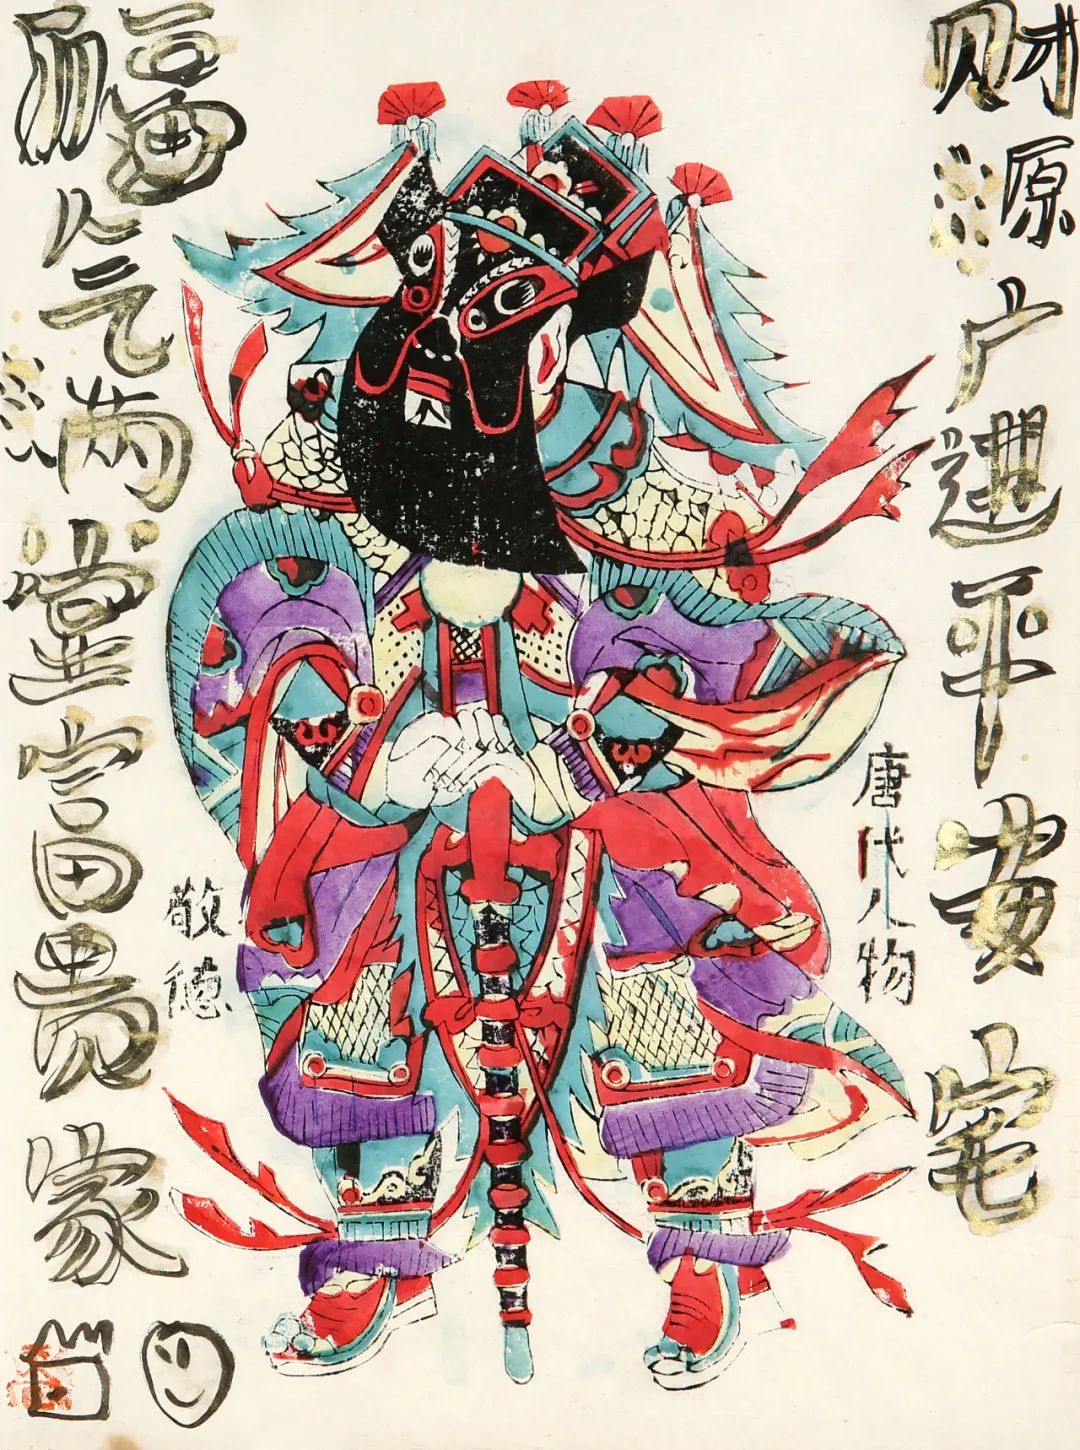 财源广進平安宅
唐代人物
敬德
福气满堂富贵家